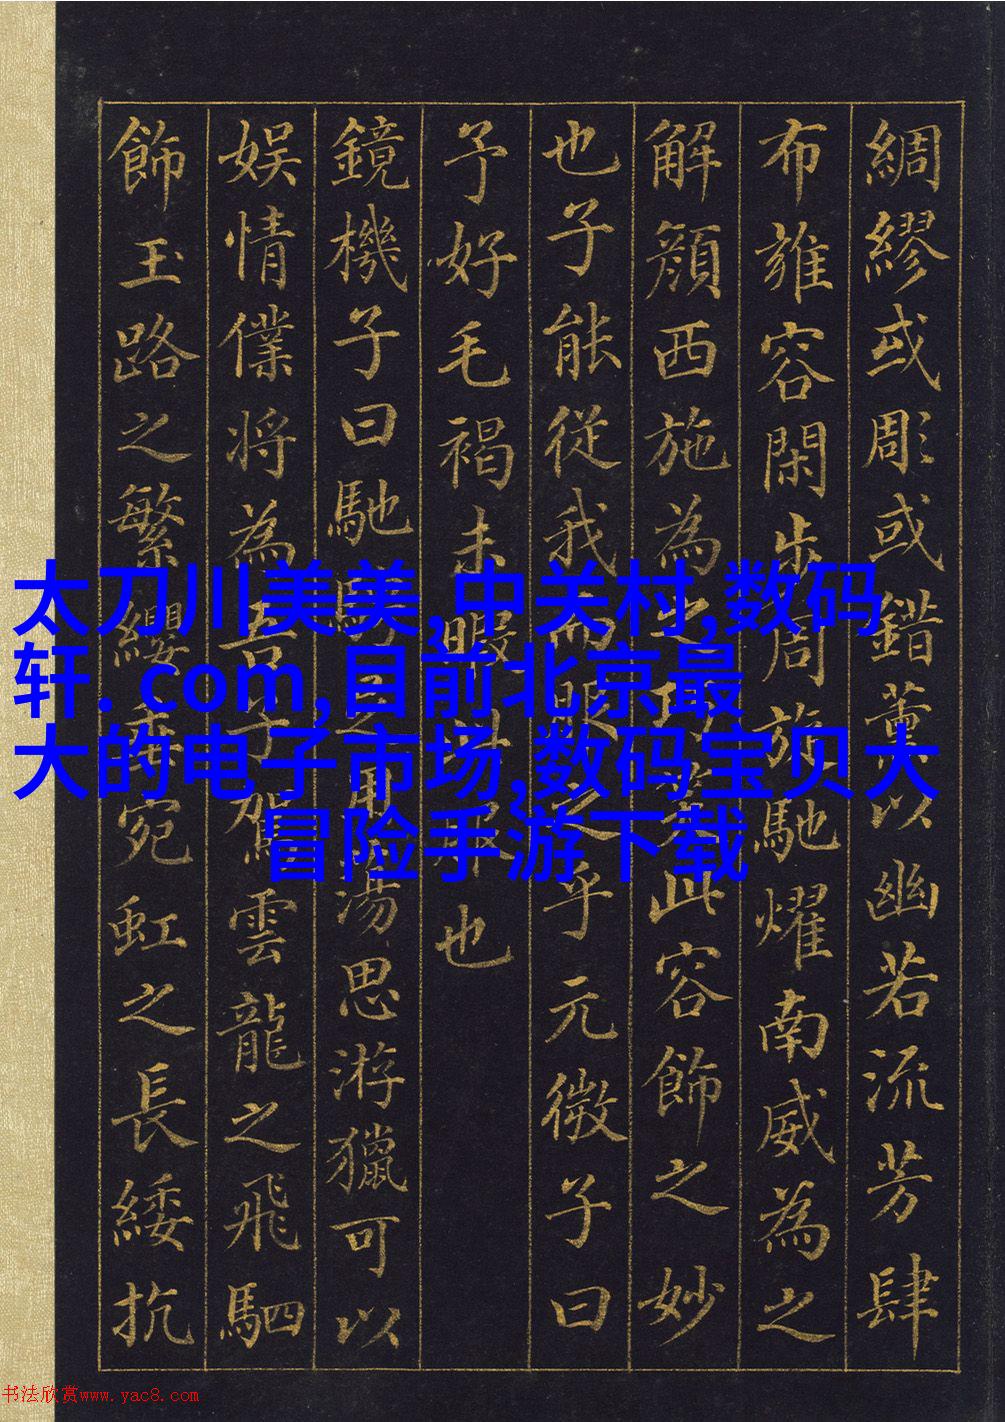 綢繆或彫或錯薰以幽若流芳肆
布雍容閑步周旋馳耀南威為之
解顏西施為之巧笑此容飾之妙
也子能從我而服之乎元微子曰
予好毛褐未暇此服也
鏡機子曰馳騁足用蕩思游獵可以
娛情僕將為吾子駕雲龍之飛駟
飾玉路之繁纓垂宛虹之長緌抗
太刀川美美,中关村,数码
轩. com,目前北京最
大的电子市场,数码宝贝大
冒险手游下载
书法欣赏www.yac8.com